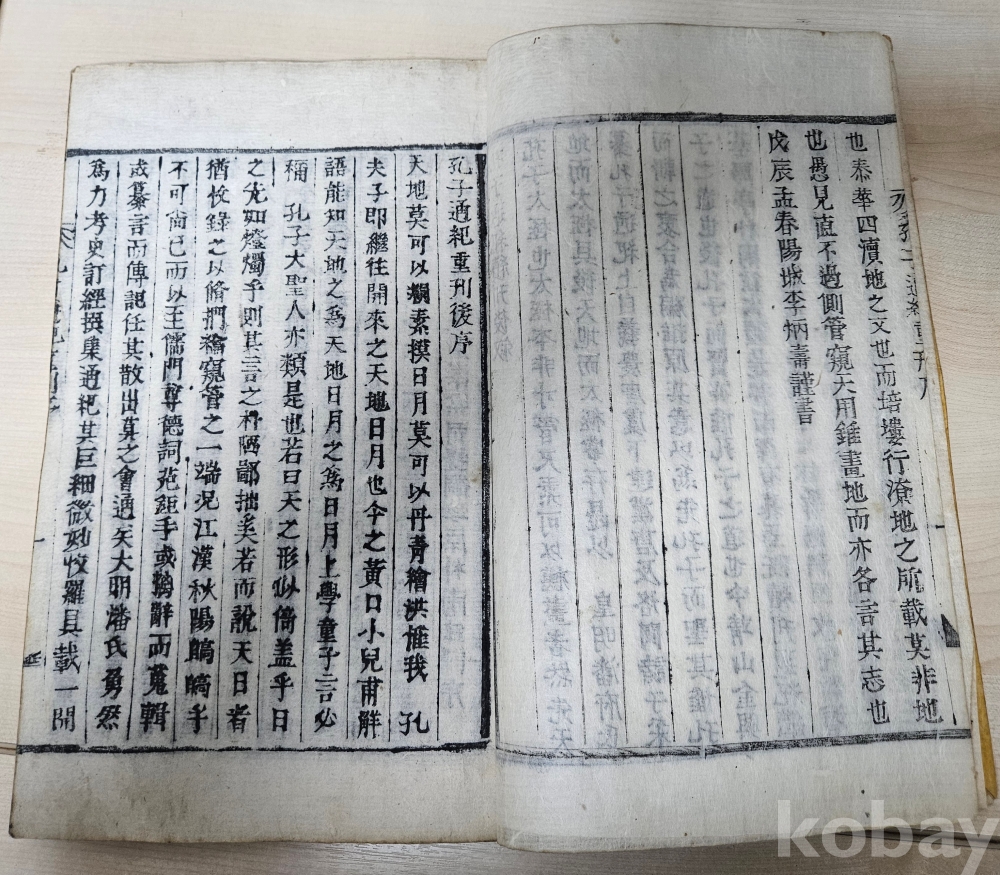 也泰華四瀆地之文也而培塿行潦地之所載莫非地
也愚見直不過側管窺大用錐畫地而亦各言其志也
戊辰孟春陽城李炳壽謹書
孔子通紀重刊後序
天地莫可以繩素摸日月莫可以丹青繪洪惟我 孔
夫子即繼往開來之天地日月也今之黃口小兒甫解
語能知天地之爲天地日月之爲日月上學童子言必
稱 孔子大聖人亦類是也若曰天之形似倚盖乎日
之光如燈燭乎則其言之朴陋鄙拙矣若而說天日者
猶收錄之以脩捫籥窺管之一端况江漢秋陽皜皜乎
不可尙已而以至儒門尊德詞苑鉅手或摛辭而蒐輯
或纂言而傳記任其散出莫之會通矣大明潘氏勇然
爲力考史訂經撰集通紀其巨細微妙收羅具載一開
kobay